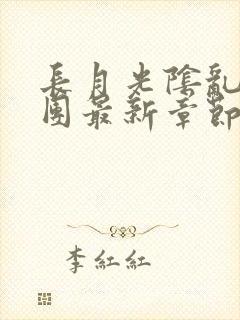 長月光陰亂
團最新章節
李紅紅